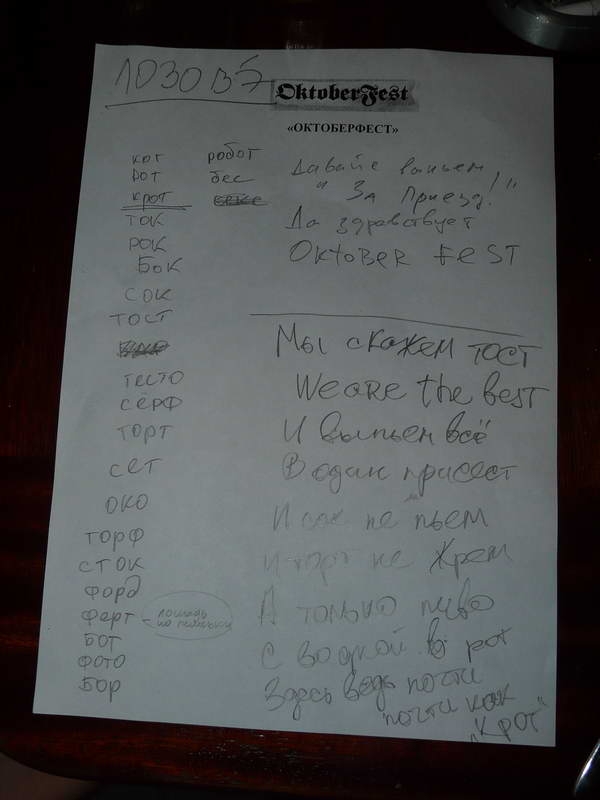 OktoberFest
«ОКТОБЕРФЕСТ»
кот
рот
крот
ток
рок
Бок
сок
тост
тесто
сёрф
торт
сет
око
торф
сток
форд
ферт - лошадь
бот
фото
бор
робот
бес
Давайте выпьем
"За Приезд!"
Да здравствует
OKTOBER FEST
Мы скажем тост
We are the best
И выпьем всё
В один присест
И сок не пьем
И торт не жрем
А только пиво
С водкой в рот
Здесь ведь почти
"почти как
"Крот"